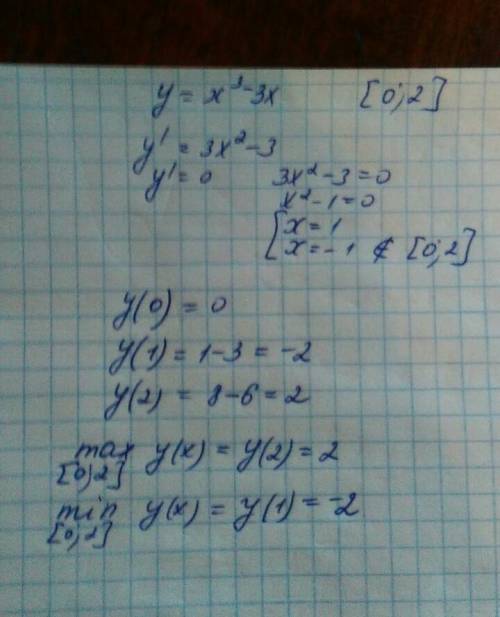 y = x³-3x [0;2]
y' = 3x²-3
y' = 0 3x²-3=0
x²-1=0
[ x = 1
x = -1 ∉ [0;2]
y(0) = 0
y(1) = 1-3 = -2
y(2) = 8-6 = 2
max y(x) = y(2) = 2
[0;2]
min y(x) = y(1) = -2
[0;2]